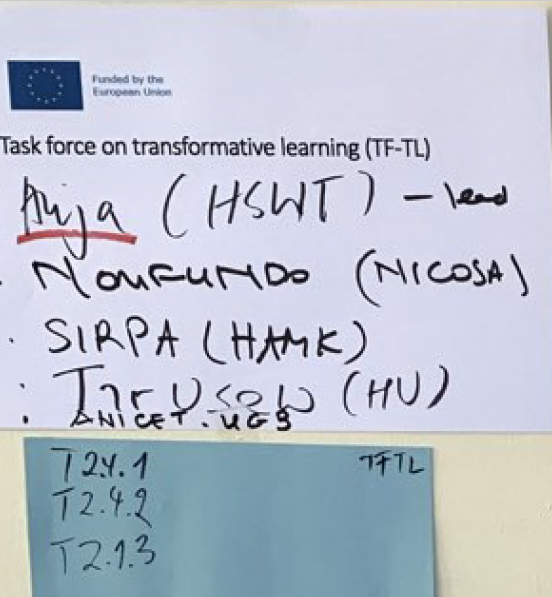 Funded by the
European Union
Task force on transformative learning (TF-TL)
Anja (HSWT) – lead
· NOMFUNDO (NICOSA)
· SIRPA (HAMK)
: (HU)
· ANICET. UGB
T 2.4.1 TFTL
T 2.4.2
T 2.1.3